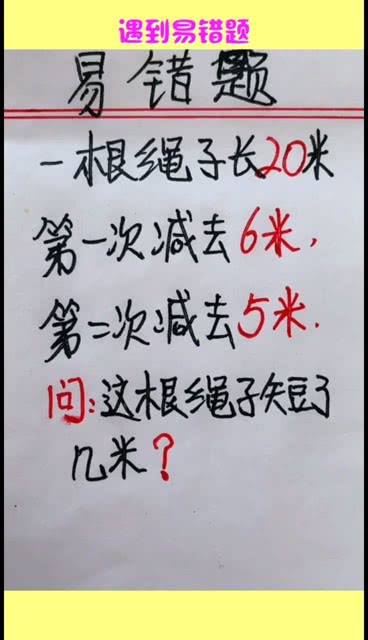 遇到易错题
易错题
一根绳子长20米
第一次减去6米,
第二次减去5米.
问:这根绳子短了
几米?